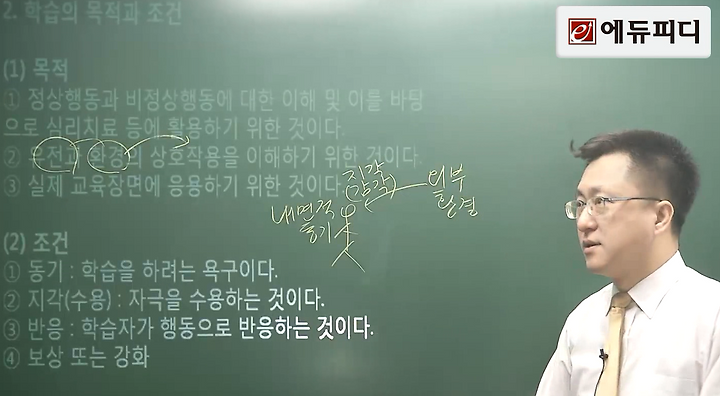 2. 학습의 목적과 조건
에듀피디
(1) 목적
① 정상행동과 비정상행동에 대한 이해 및 이를 바탕
으로 심리치료 등에 활용하기 위한 것이다.
② 유전과 환경의 상호작용을 이해하기 위한 것이다.
③ 실제 교육장면에 응용하기 위한 것이다.
지각
(감각)
외부
환경
내면적
동기
(2) 조건
① 동기 : 학습을 하려는 욕구이다.
② 지각(수용) : 자극을 수용하는 것이다.
③ 반응 : 학습자가 행동으로 반응하는 것이다.
④ 보상 또는 강화